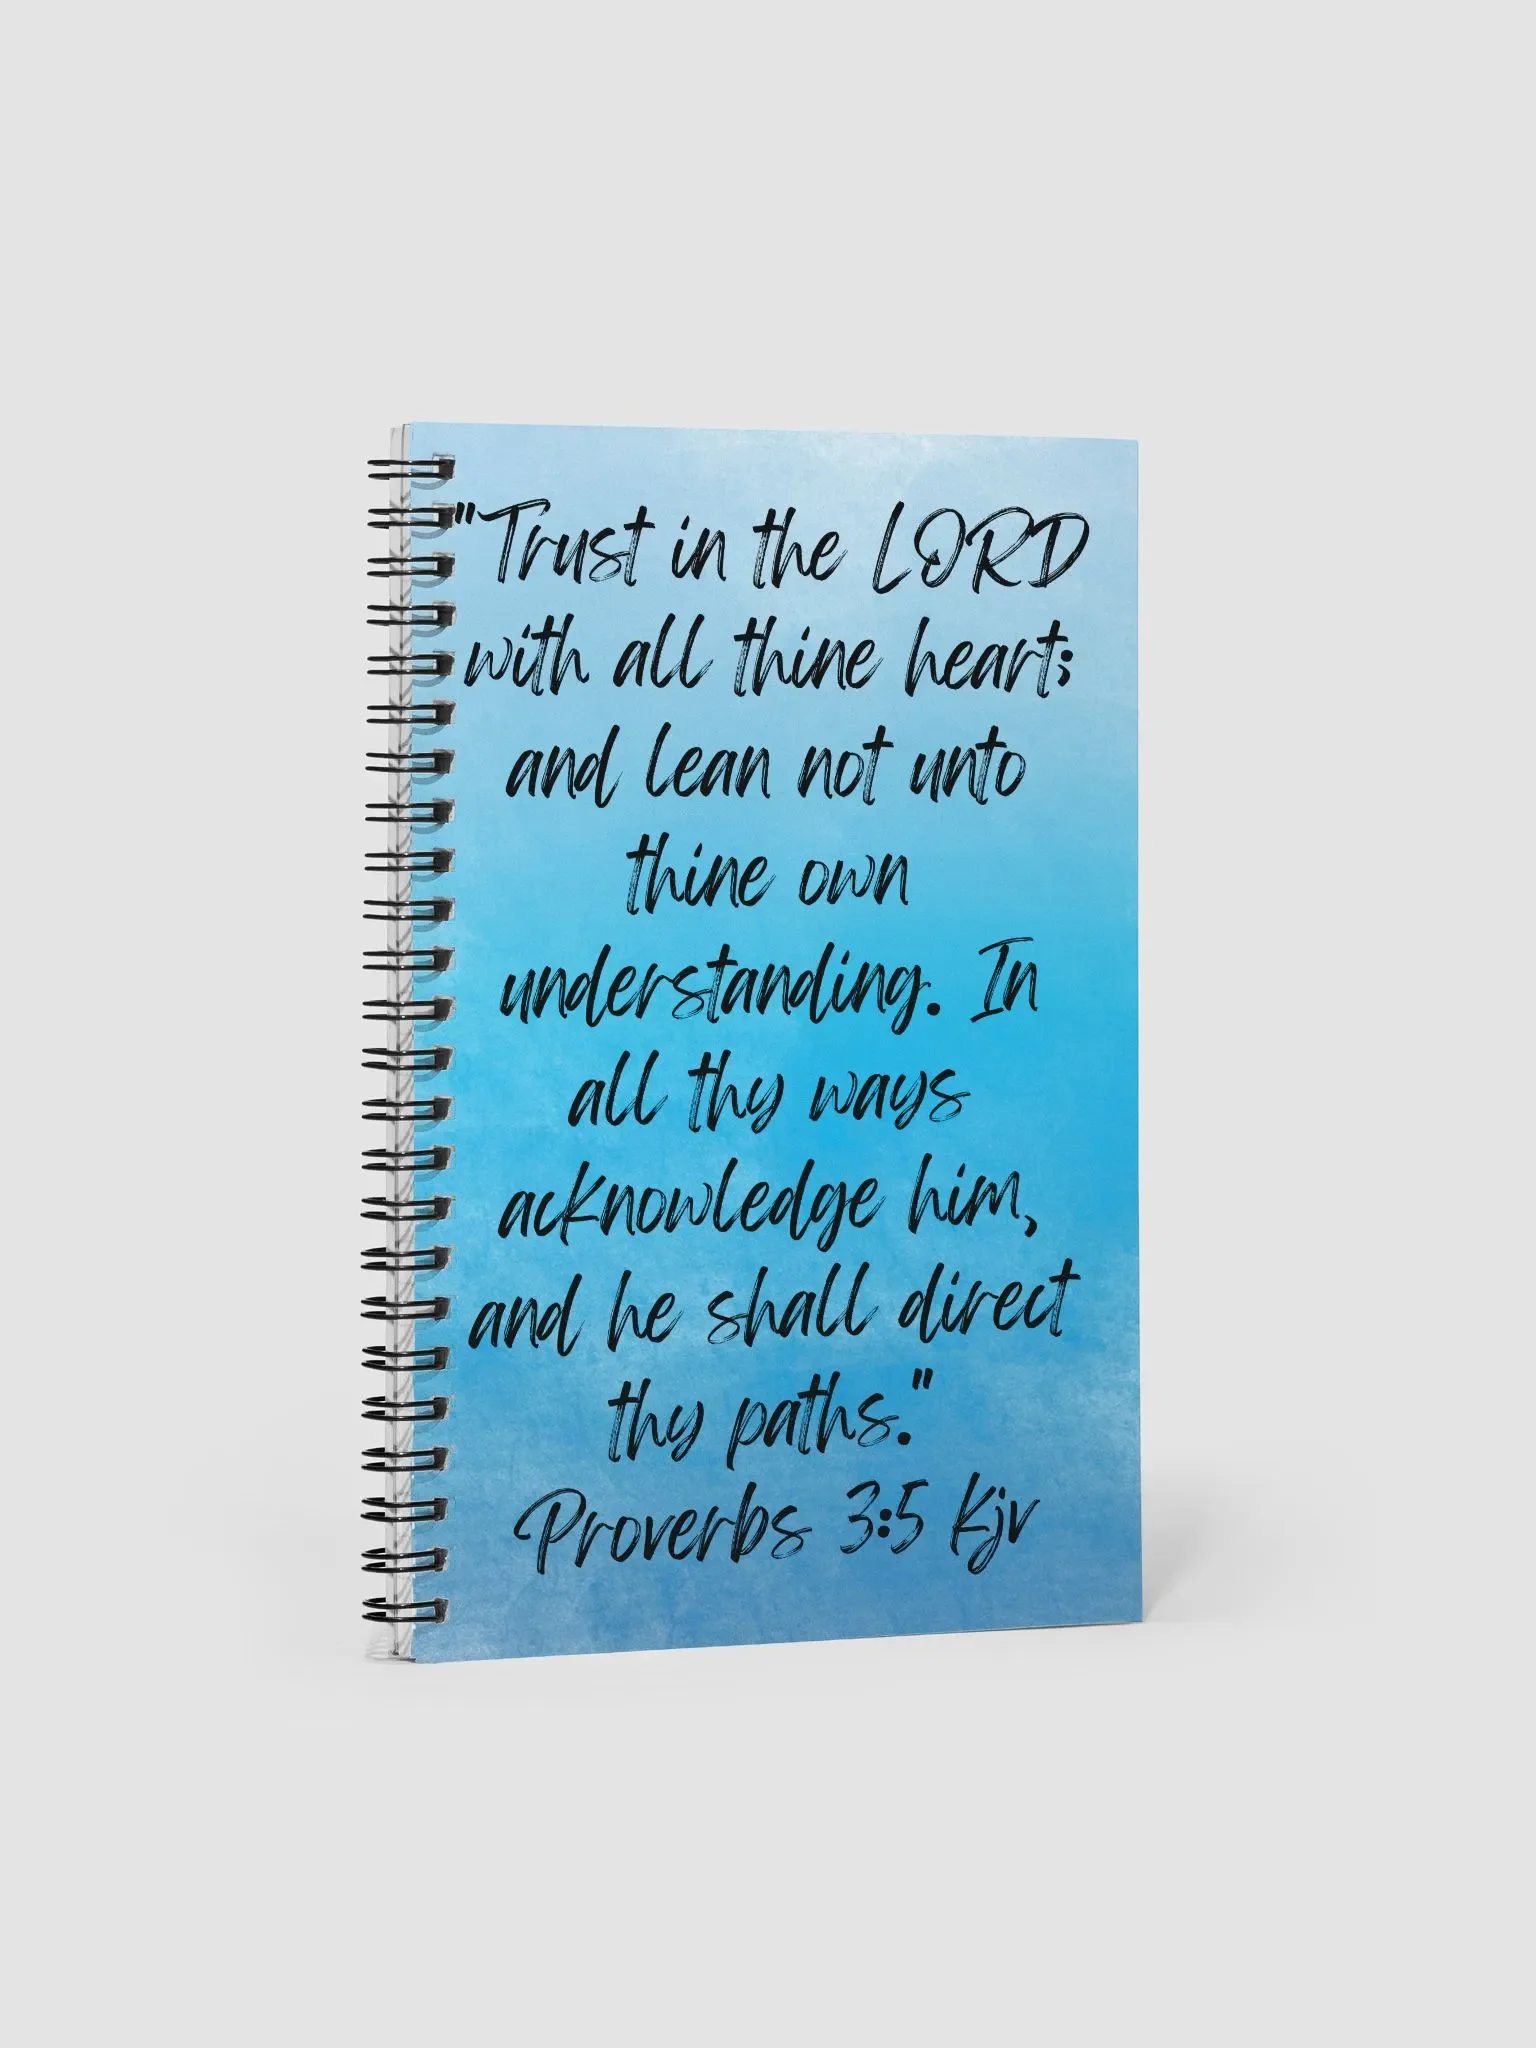 "Trust in the LORD
with all thine heart;
and lean not unto
thine own
understanding. In
all thy ways
acknowledge him,
and he shall direct
thy paths."
Proverbs 3:5 Kjv